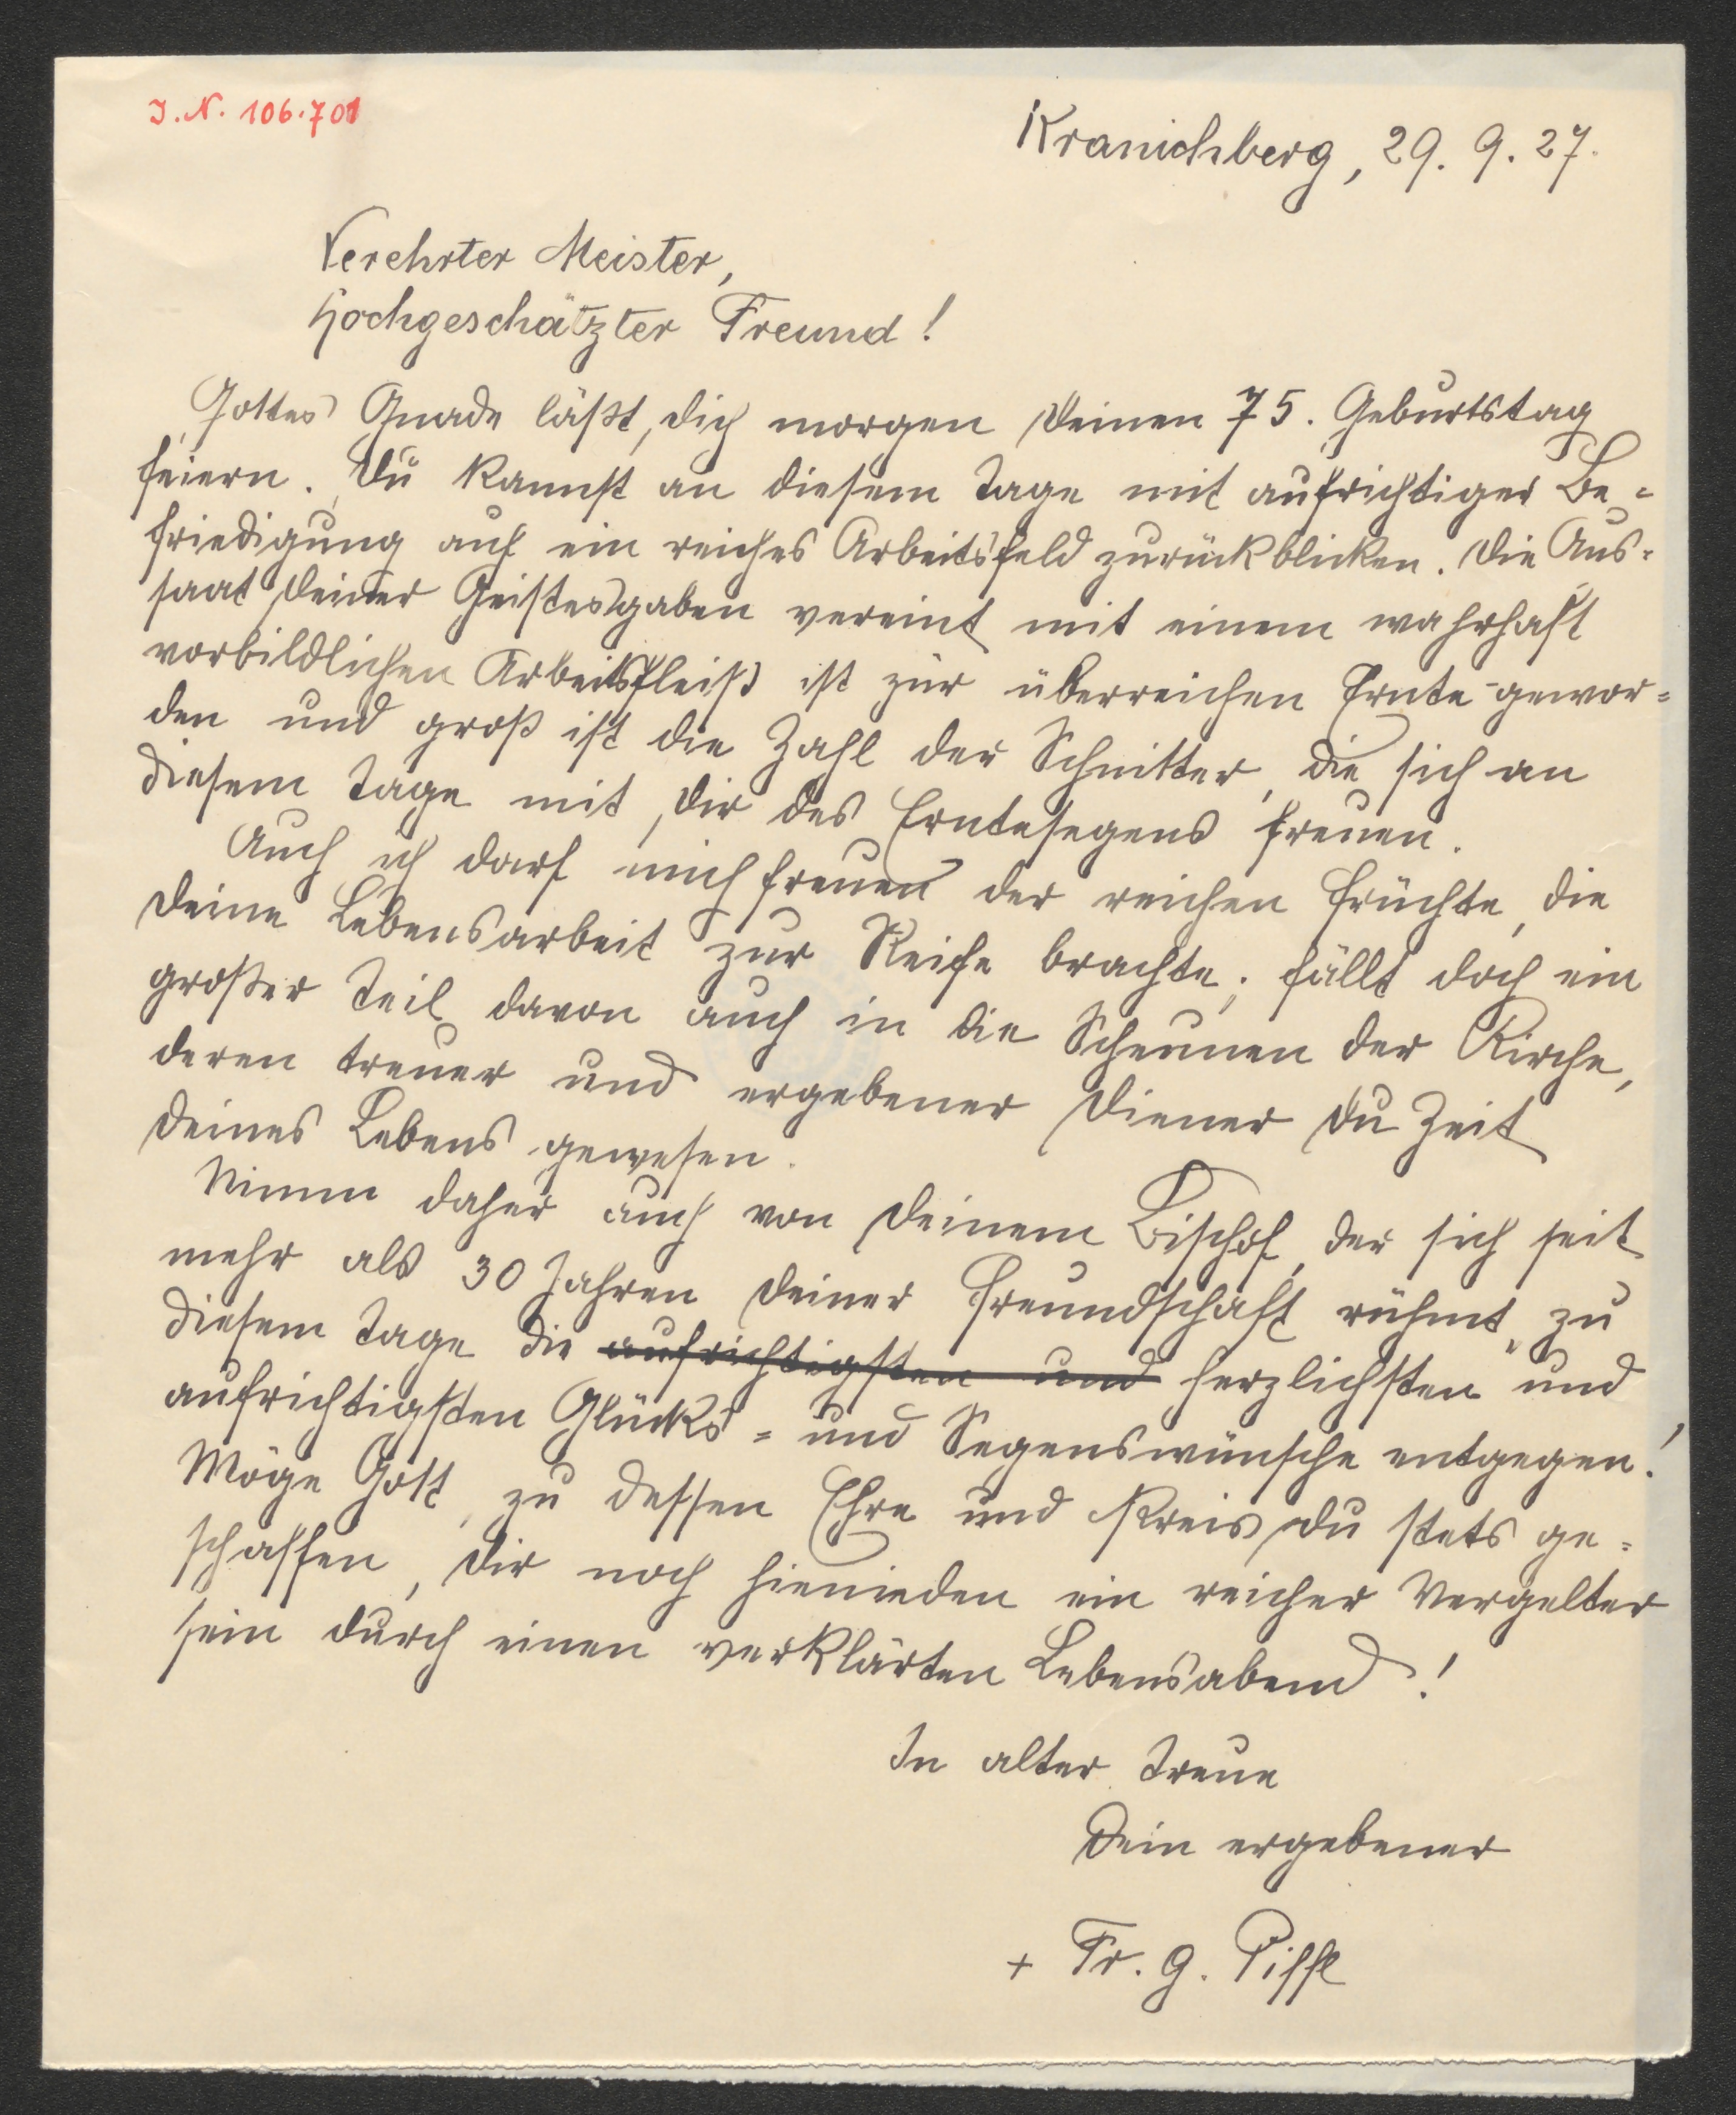 J.N. 106.701
Kranichberg, 29. 9. 27.
Verehrter Meister,
Hochgeschätzter Freund!
Gottes Gnade läßt Dich morgen Deinen 75. Geburtstag
feiern. Du kannst an diesem Tage mit aufrichtiger Be=
friedigung auf ein reiches Arbeitsfeld zurückblicken. Die Aus=
saat Deiner Geistesgaben vereint mit einem wahrhaft
vorbildlichen Arbeitsfleiß ist zur überreichen Ernte gewor=
den und groß ist die Zahl der Schnitter, die sich an
diesem Tage mit Dir des Erntesegens freuen.
Auch ich darf mich freuen der reichen Früchte, die
Deine Lebensarbeit zur Reife brachte; fällt doch ein
großer Teil davon auch in die Scheunen der Kirche,
deren treuer und ergebener Diener Du Zeit
Deines Lebens gewesen.
Nimm daher auch von Deinem Bischof, der sich seit
mehr als 30 Jahren Deiner Freundschaft rühmt, zu
diesem Tage die aufrichtigsten und herzlichsten und
aufrichtigsten Glücks= und Segenswünsche entgegen!
Möge Gott, zu dessen Ehre und Preis Du stets ge=
schaffen, Dir noch hienieden ein reicher Vergelter
sein durch einen verklärten Lebensabend!
In alter Treue
Dein ergebener
+ Fr. G. Piffl